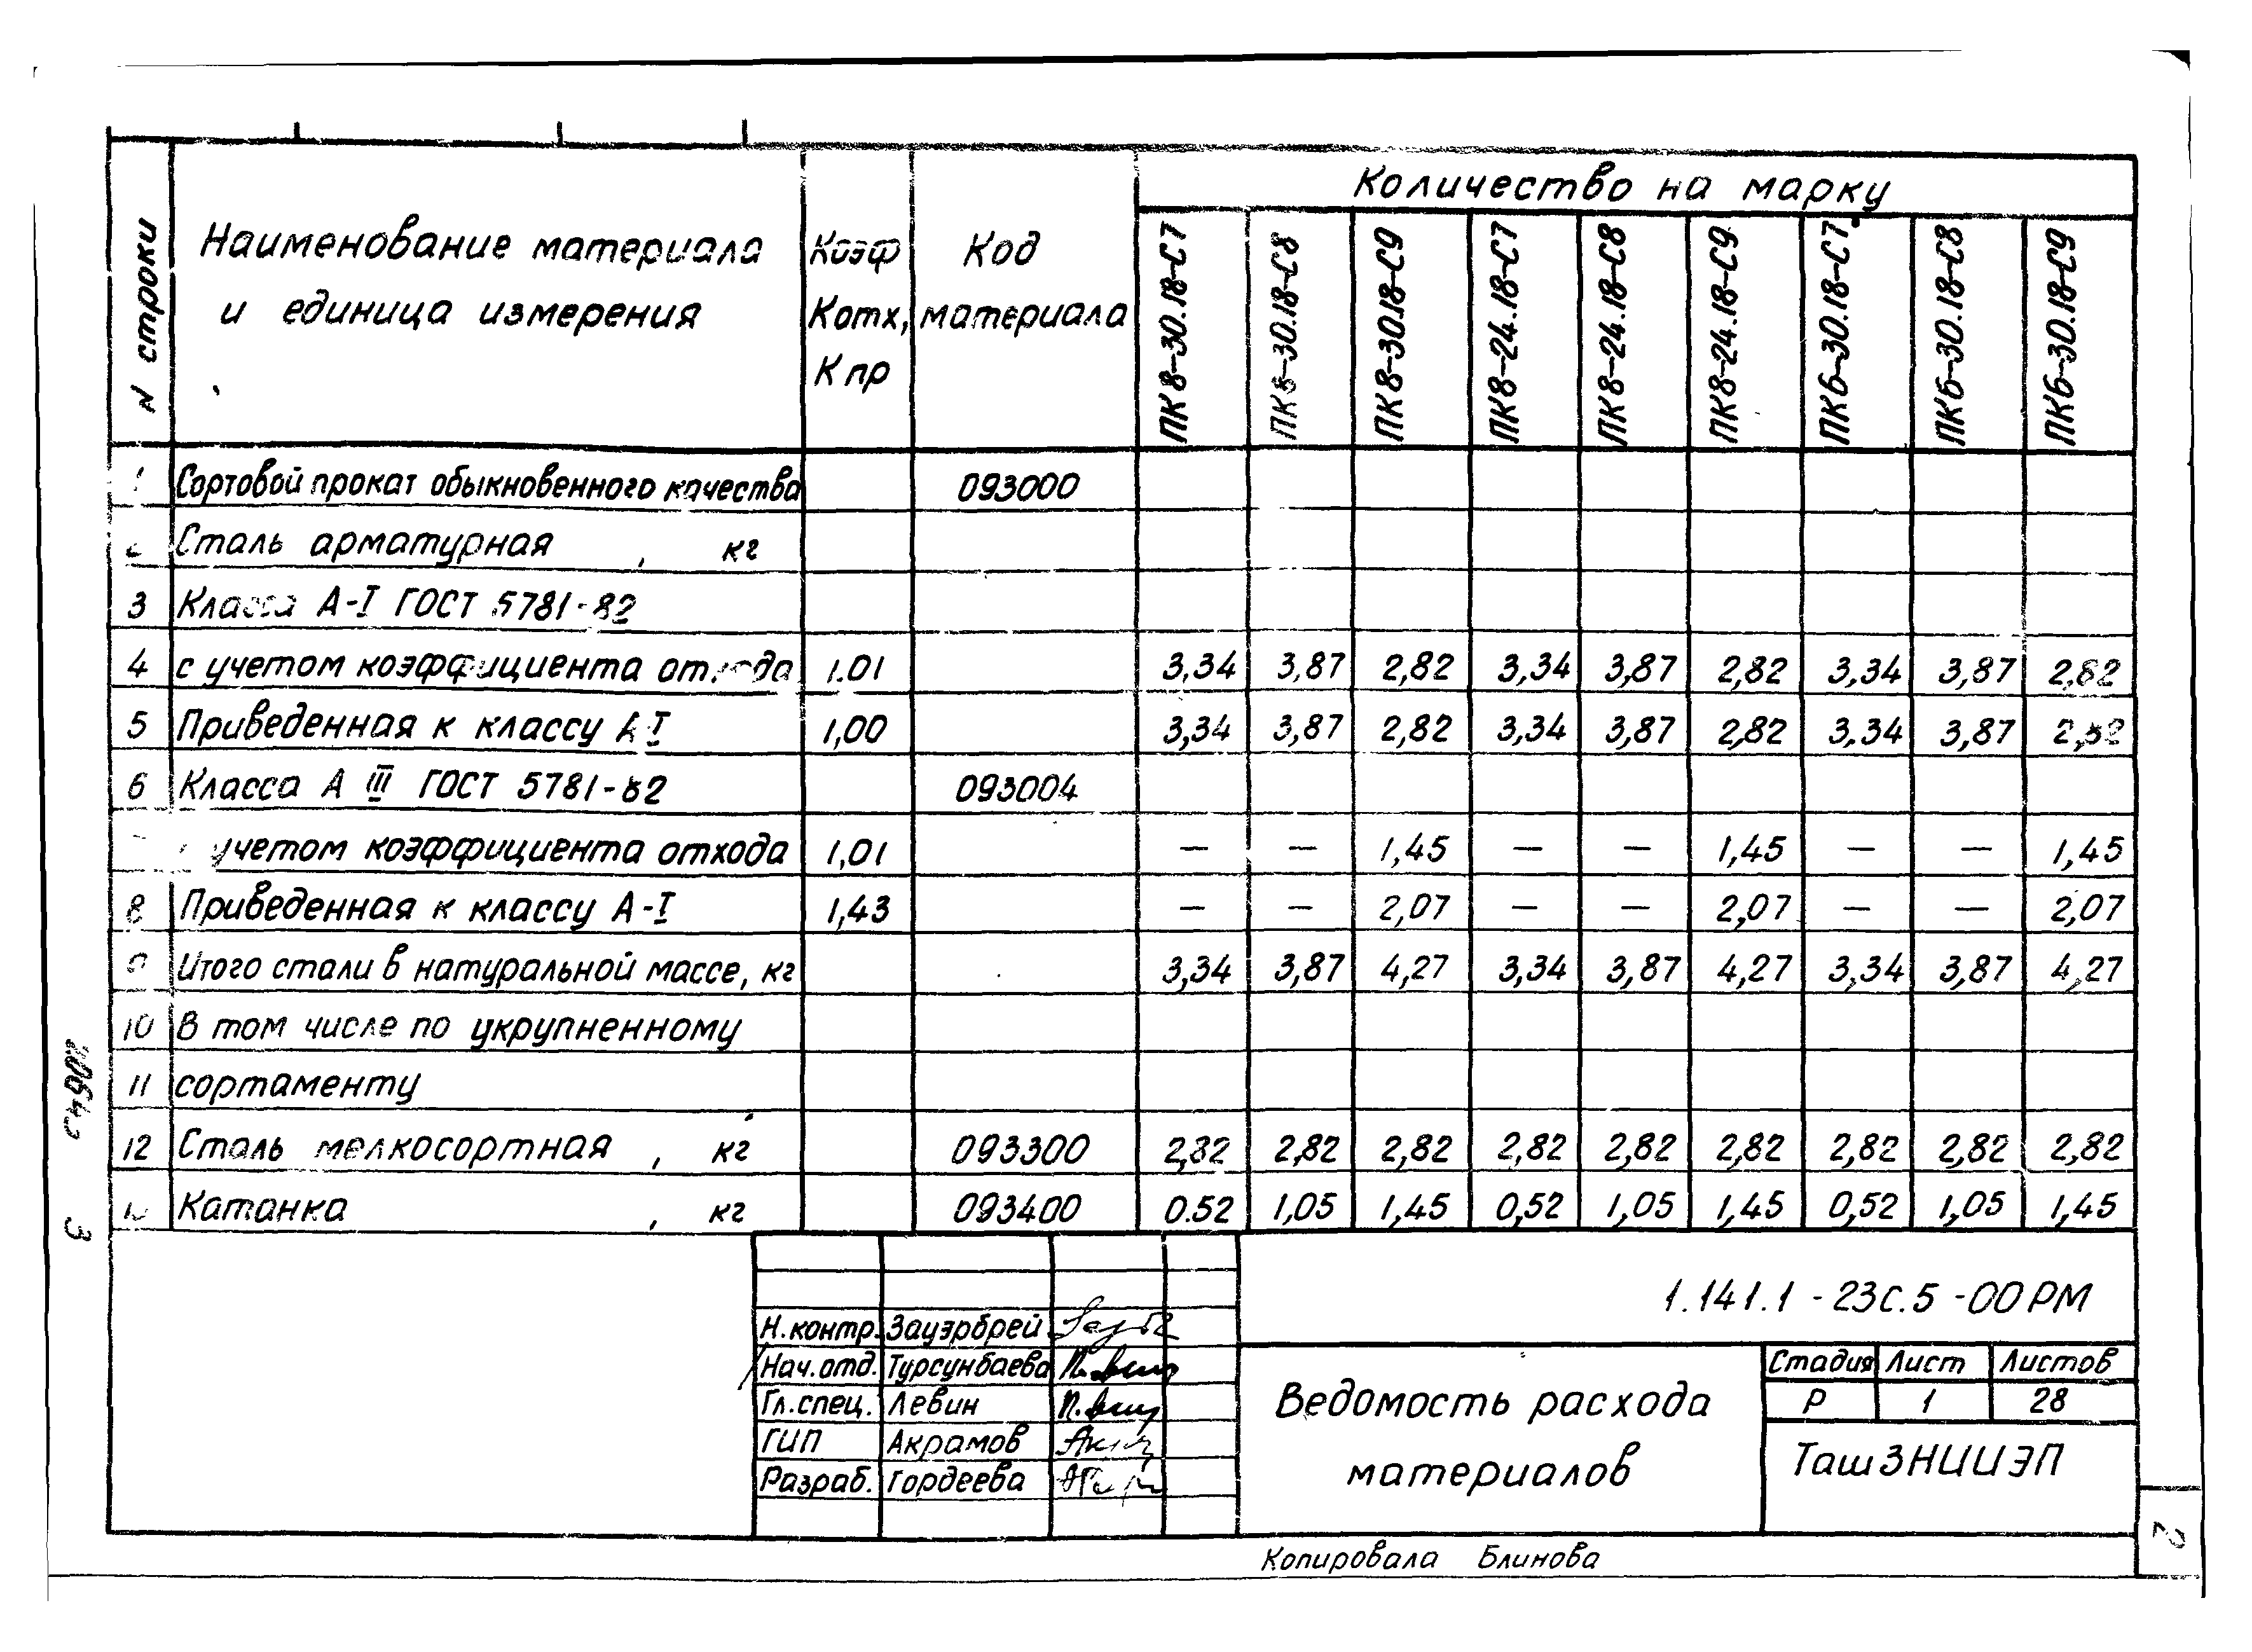 Количество на марку
N строки
Наименование материала и единица измерения
Коэф Котх, К пр
Код материала
ПК8-30.18-С7 ПК8-30.18-С8 ПК8-30.18-С9 ПК8-24.18-С7 ПК8-24.18-С8 ПК8-24.18-С9 ПК6-30.18-С7 ПК6-30.18-С8 ПК6-30.18-С9
1 Сортовой прокат обыкновенного качества 093000
2 Сталь арматурная , кг
3 Класса А-I ГОСТ 5781-82
4 с учетом коэффициента отхода 1.01 3,34 3,87 2,82 3,34 3,87 2,82 3,34 3,87 2,82
5 Приведенная к классу А-I 1,00 3,34 3,87 2,82 3,34 3,87 2,82 3,34 3,87 2,82
6 Класса А III ГОСТ 5781-82 093004
учетом коэффициента отхода 1,01 — — 1,45 — — 1,45 — — 1,45
8 Приведенная к классу А-I 1,43 — — 2,07 — — 2,07 — — 2,07
9 Итого стали в натуральной массе, кг 3,34 3,87 4,27 3,34 3,87 4,27 3,34 3,87 4,27
10 В том числе по укрупненному
11 сортаменту
12 Сталь мелкосортная , кг 093300 2,82 2,82 2,82 2,82 2,82 2,82 2,82 2,82 2,82
Катанка , кг 093400 0.52 1,05 1,45 0,52 1,05 1,45 0,52 1,05 1,45
1.141.1 - 23с.5 - 00 РМ
Н.контр. Зауэрбрей
Нач.отд. Турсунбаева
Гл.спец. Левин
ГИП Акрамов
Разраб. Гордеева
Ведомость расхода
материалов
Стадия Лист Листов
Р 1 28
ТашЗНИИЭП
Копировала Блинова
3
2